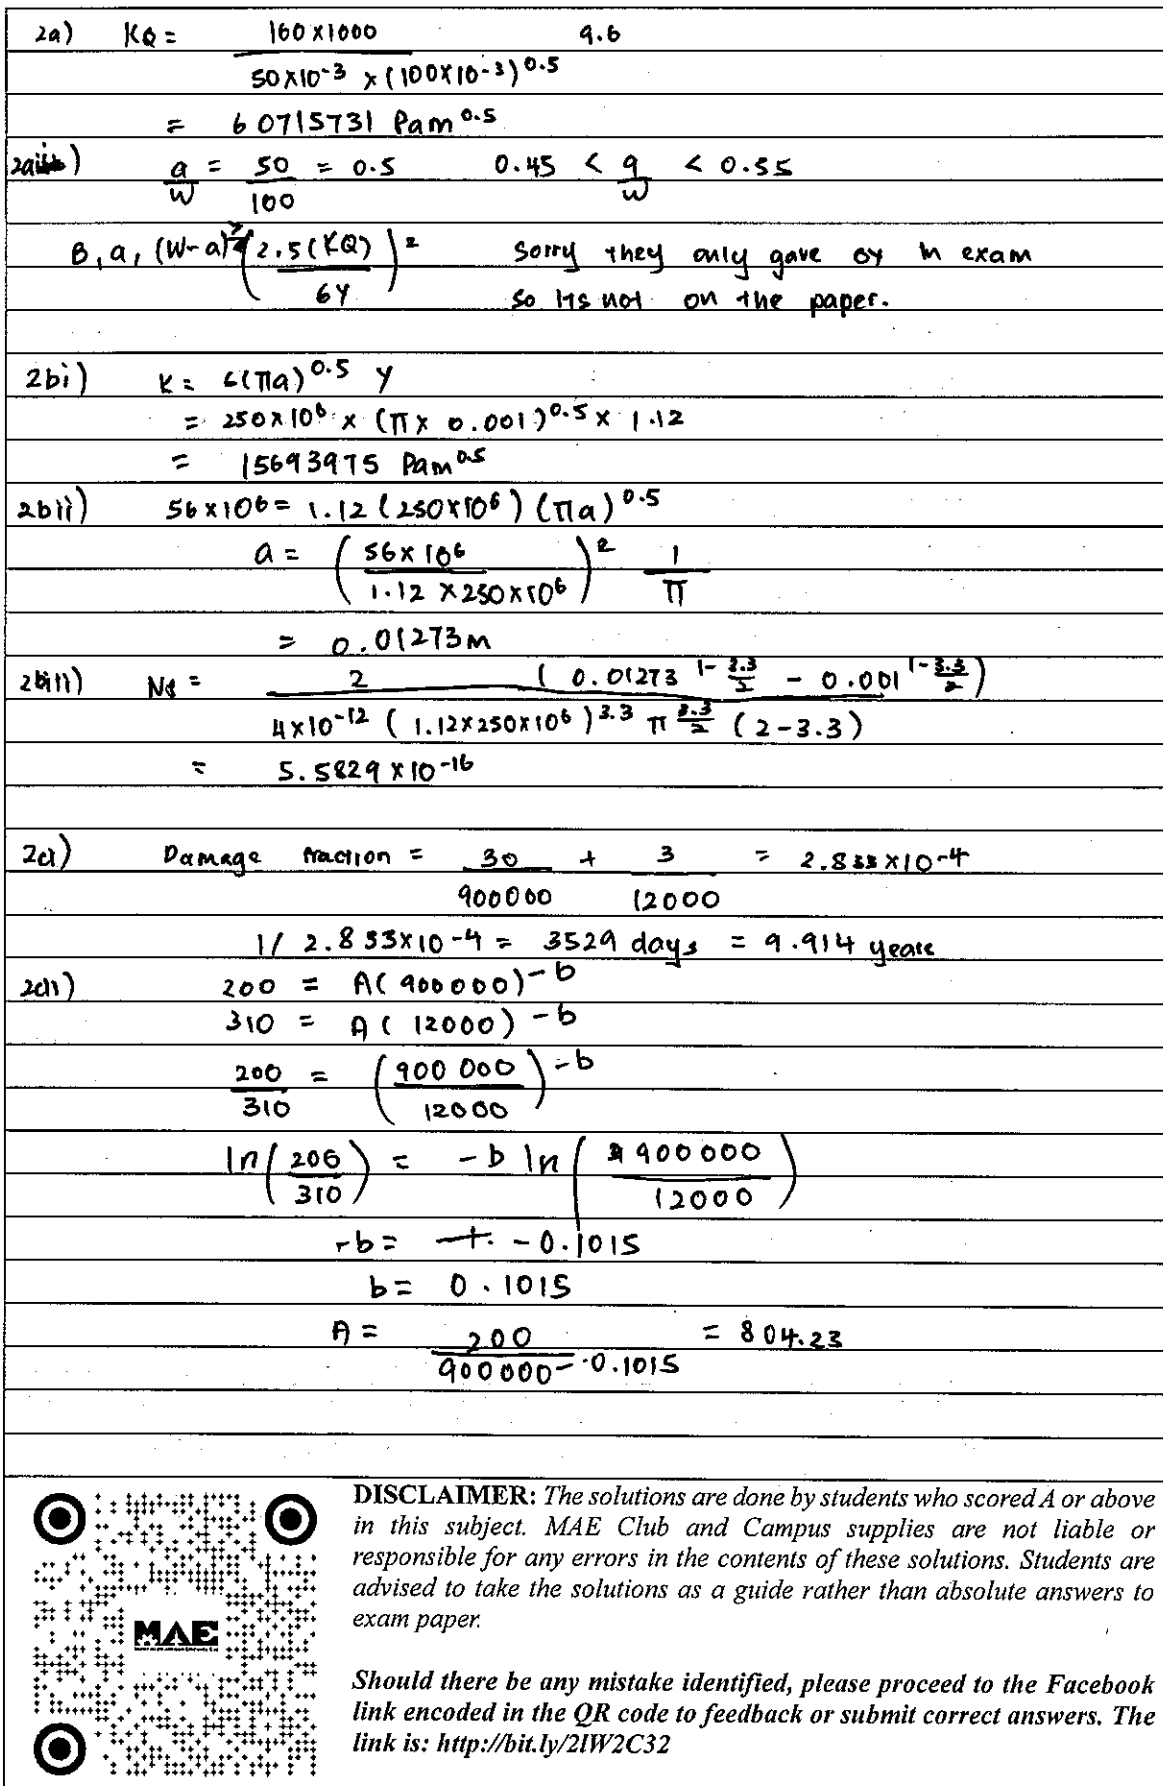 2a) KQ = 160 x1000 9.6
50x10-3 x (100x10-3)0.5
= 60715731 Pam0.5
2aii) a = 50 = 0.5 0.45 < a < 0.55
W 100 W
B, a, (W-a) ≥ ( 2.5 (KQ) )2 sorry they only gave σy in exam
σY so its not on the paper.
2bi) K = σ(πa)0.5 Y
= 250x106 x (π x 0.001)0.5 x 1.12
= 15693975 Pam0.5
2bii) 56x106 = 1.12 (250x106) (πa)0.5
a = ( 56x106 )2 1
1.12 x250x106 π
= 0.01273m
2biii) Nf = 2 ( 0.01273 1-3.3/2 - 0.001 1-3.3/2 )
4x10-12 ( 1.12x250x106 )3.3 π 3.3/2 (2-3.3)
= 5.5829 x10-16
2ci) Damage fraction = 30 + 3 = 2.833 x10-4
900000 12000
1/ 2.833x10-4 = 3529 days = 9.914 years
2cii) 200 = A( 900000)-b
310 = A ( 12000) -b
200 = ( 900 000 )-b
310 12000
ln( 200 ) = -b ln ( 900000 )
310 12000
-b = -0.1015
b = 0.1015
A = 200 = 804.23
900000-0.1015
DISCLAIMER: The solutions are done by students who scored A or above
in this subject. MAE Club and Campus supplies are not liable or
responsible for any errors in the contents of these solutions. Students are
advised to take the solutions as a guide rather than absolute answers to
exam paper.
MAE
Should there be any mistake identified, please proceed to the Facebook
link encoded in the QR code to feedback or submit correct answers. The
link is: http://bit.ly/2lW2C32